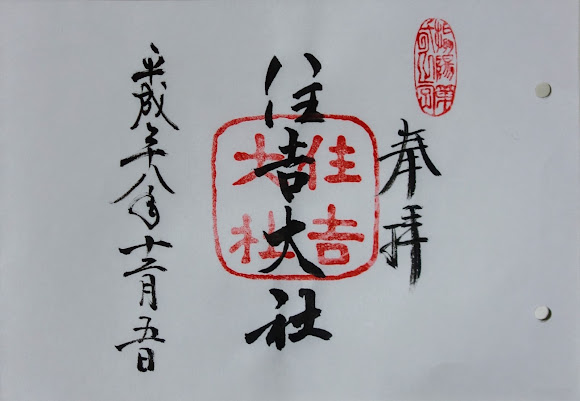 奉拝
住吉大社
住吉
大社
平成二十八年十二月五日